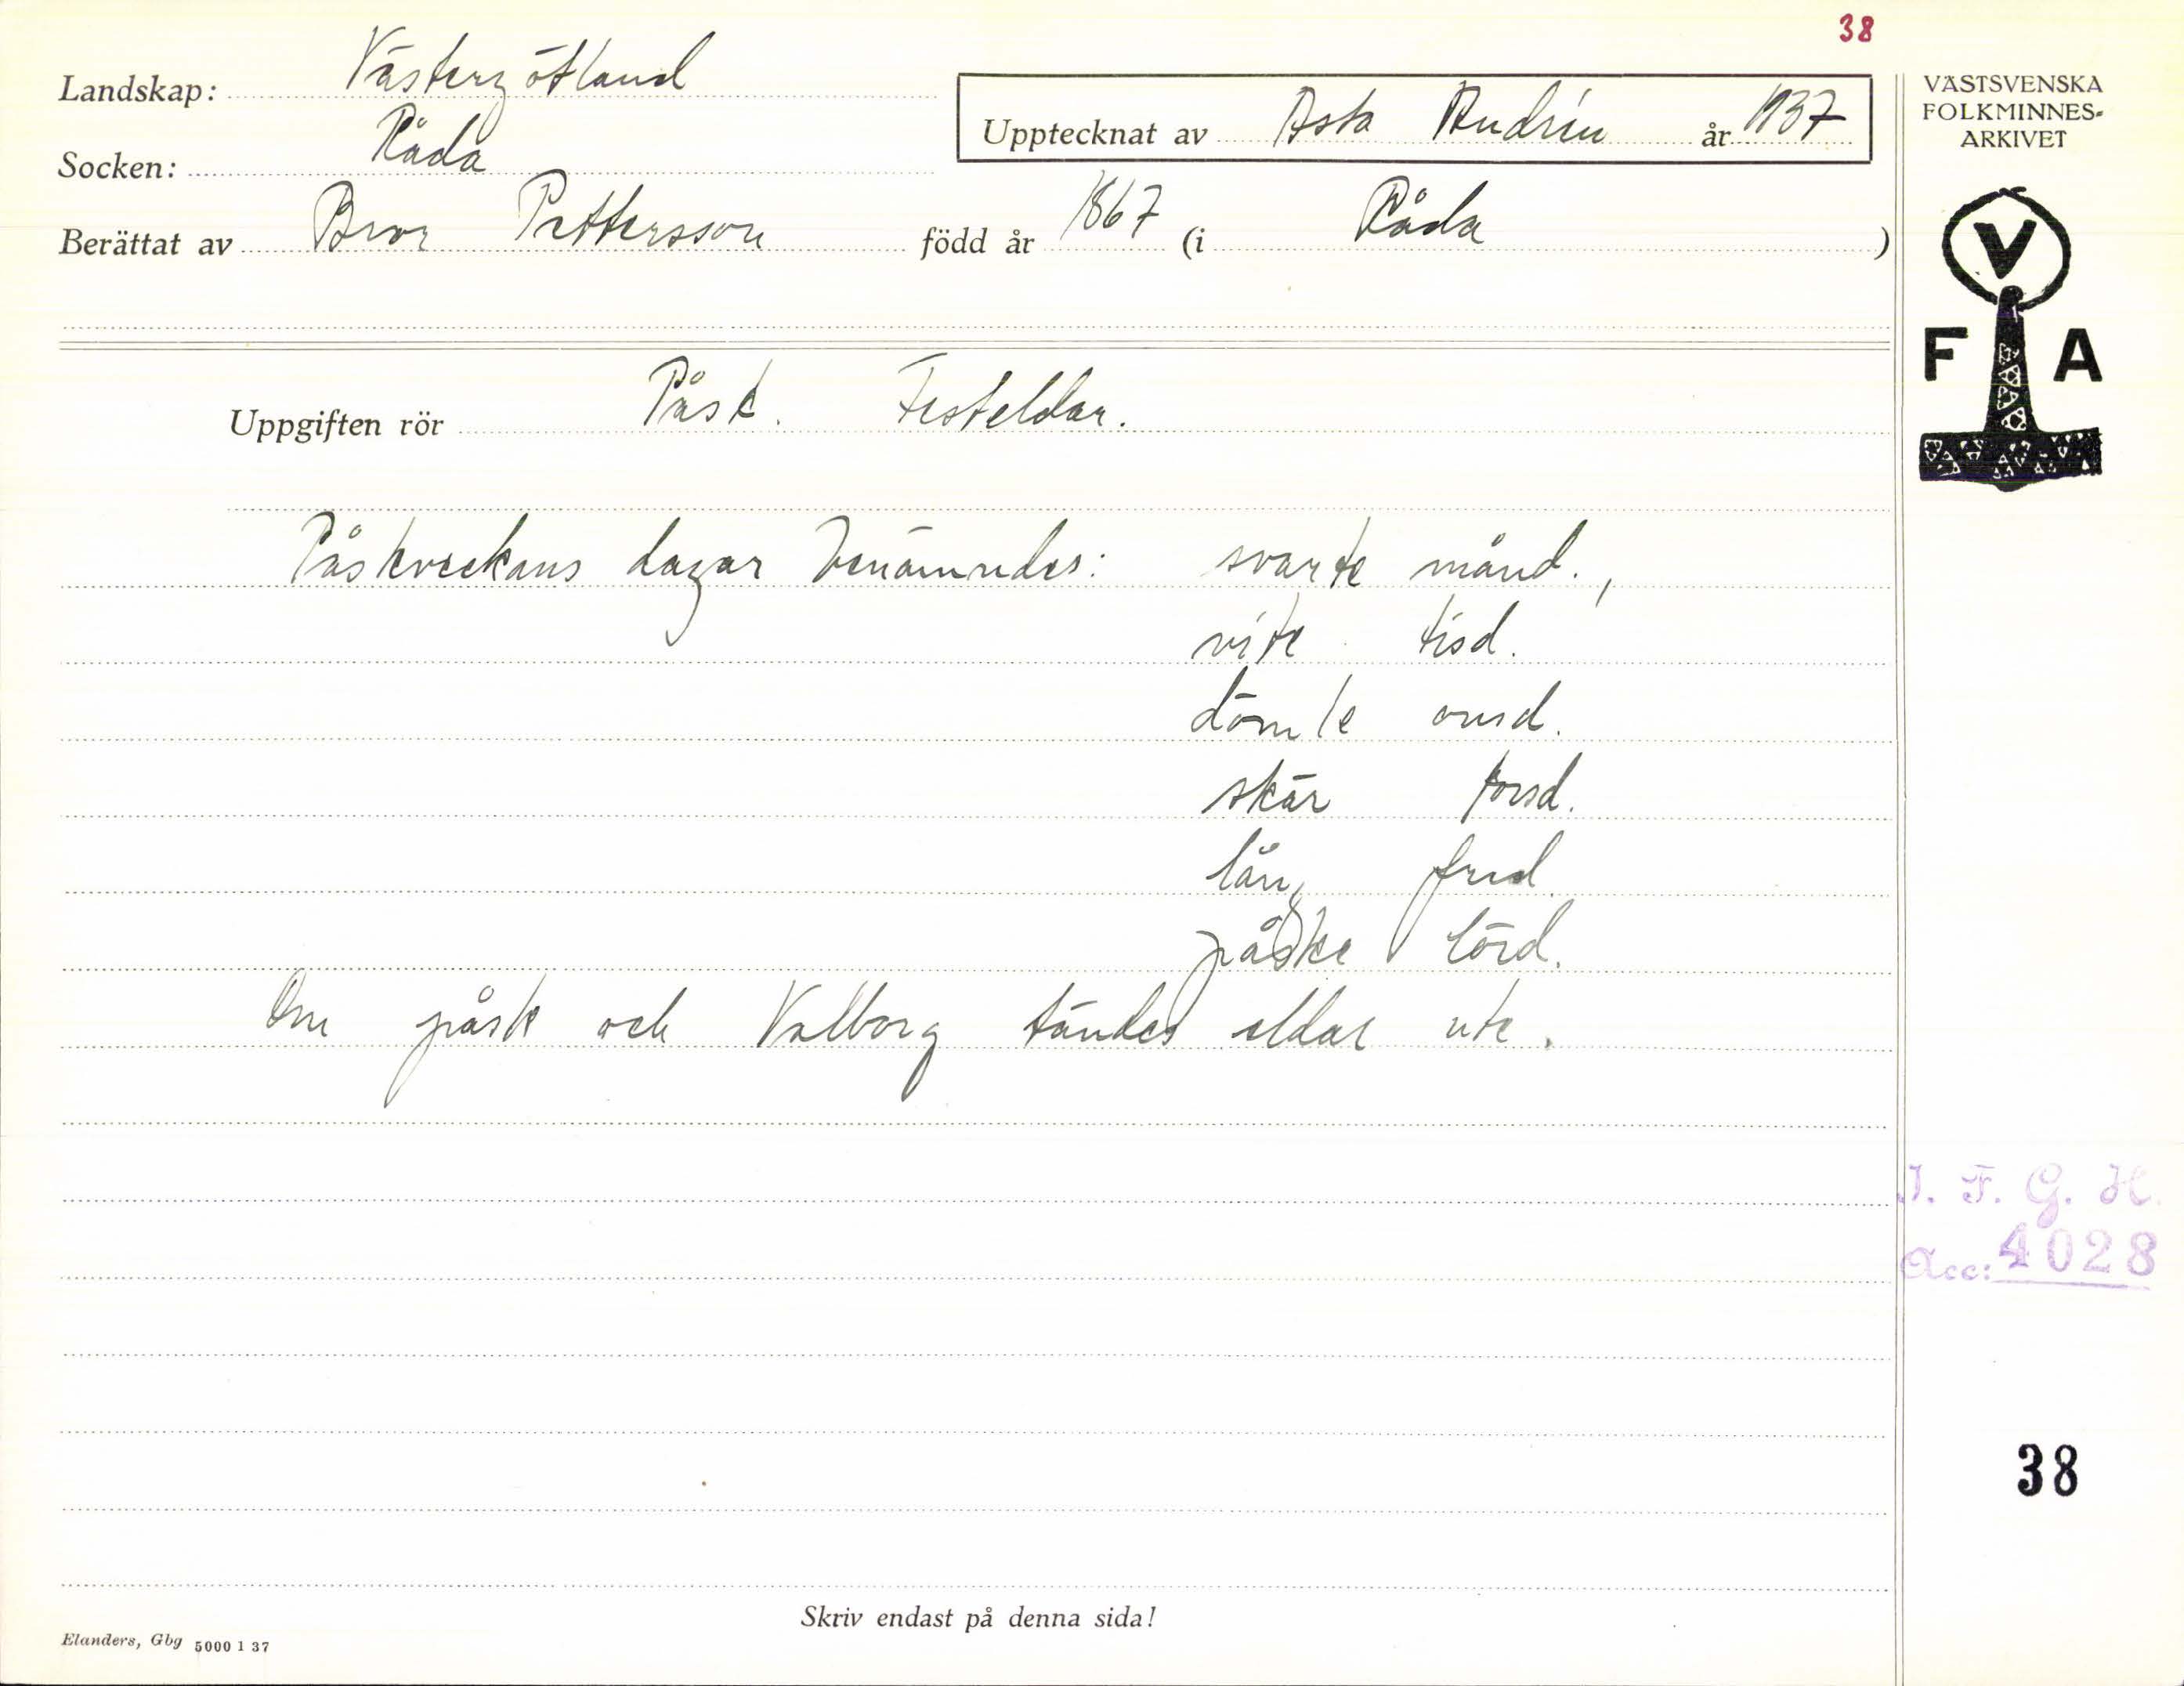 38
Landskap: Västergötland
Socken: Råda
Upptecknat av Asta Andrén år 1937
Berättat av Bror Pettersson född år 1867 (i Råda )
Uppgiften rör Påsk. Festeldar.
Påskveckans dagar benämndes: svarte månd.,
vite tisd.
dömle onsd.
skär torsd.
lång fred.
påske lörd.
Om påsk och Valborg tändes eldar ute.
Skriv endast på denna sida!
Elanders, Gbg 5000 1 37
VÄSTSVENSKA
FOLKMINNES-
ARKIVET
V
F A
I. F. G. H.
Acc: 4028
38